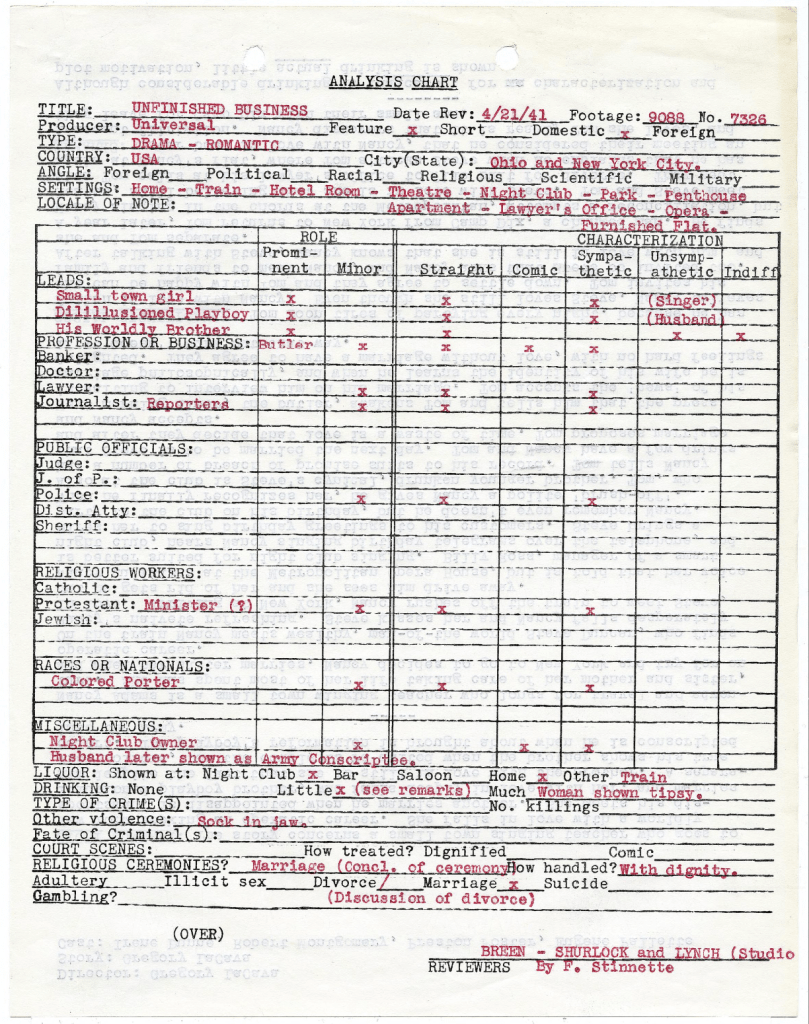 ANALYSIS CHART
TITLE: UNFINISHED BUSINESS Date Rev: 4/21/41 Footage: 9088 No. 7326
Producer: Universal Feature x Short Domestic x Foreign
TYPE: DRAMA - ROMANTIC
COUNTRY: USA City(State): Ohio and New York City.
ANGLE: Foreign Political Racial Religious Scientific Military
SETTINGS: Home - Train - Hotel Room - Theatre - Night Club - Park - Penthouse
LOCALE OF NOTE: Apartment - Lawyer's Office - Opera -
Furnished Flat.
ROLE CHARACTERIZATION
Promi- Sympa- Unsymp-
nent Minor Straight Comic thetic athetic Indiff
LEADS:
Small town girl x x x (Singer)
Dilillusioned Playboy x x x (Husband)
His Worldly Brother x x x x
PROFESSION OR BUSINESS: Butler x x x x
Banker:
Doctor:
Lawyer: x x x
Journalist: Reporters x x x
PUBLIC OFFICIALS:
Judge:
J. of P.:
Police: x x x
Dist. Atty:
Sheriff:
RELIGIOUS WORKERS:
Catholic:
Protestant: Minister (?) x x x
Jewish:
RACES OR NATIONALS:
Colored Porter x x x
MISCELLANEOUS:
Night Club Owner x x x
Husband later shown as Army Conscriptee.
LIQUOR: Shown at: Night Club x Bar Saloon Home x Other Train
DRINKING: None Little x (see remarks) Much Woman shown tipsy.
TYPE OF CRIME(S): No. killings
Other violence: Sock in jaw.
Fate of Criminal(s):
COURT SCENES: How treated? Dignified Comic
RELIGIOUS CEREMONIES? Marriage (Concl. of ceremony) How handled? With dignity.
Adultery Illicit sex Divorce / Marriage x Suicide
Gambling? (Discussion of divorce)
(OVER)
BREEN - SHURLOCK and LYNCH (Studio
REVIEWERS By F. Stinnette